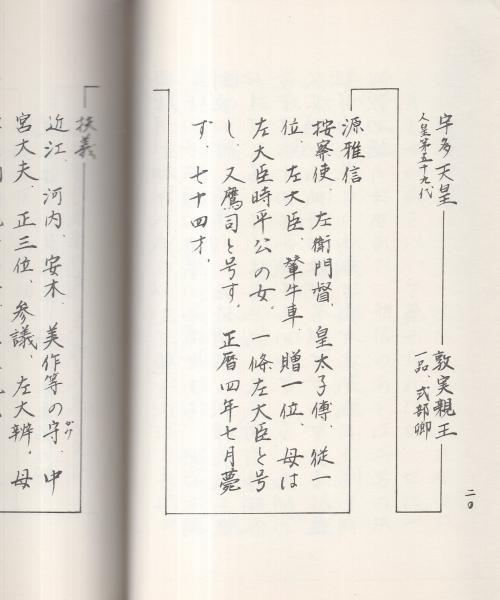 宇多天皇
人皇第五十九代
敦実親王
一品、式部卿
源雅信
按察使、左衛門督、皇太子傅、従一
位、左大臣、輦牛車、贈一位、母は
左大臣時平公の女。一條左大臣と号
し、又鷹司と号す。正暦四年七月薨
ず、七十四才。
二〇
扶義
近江、河内、安木、美作等の守、中
宮大夫、正三位、参議、左大辨。母